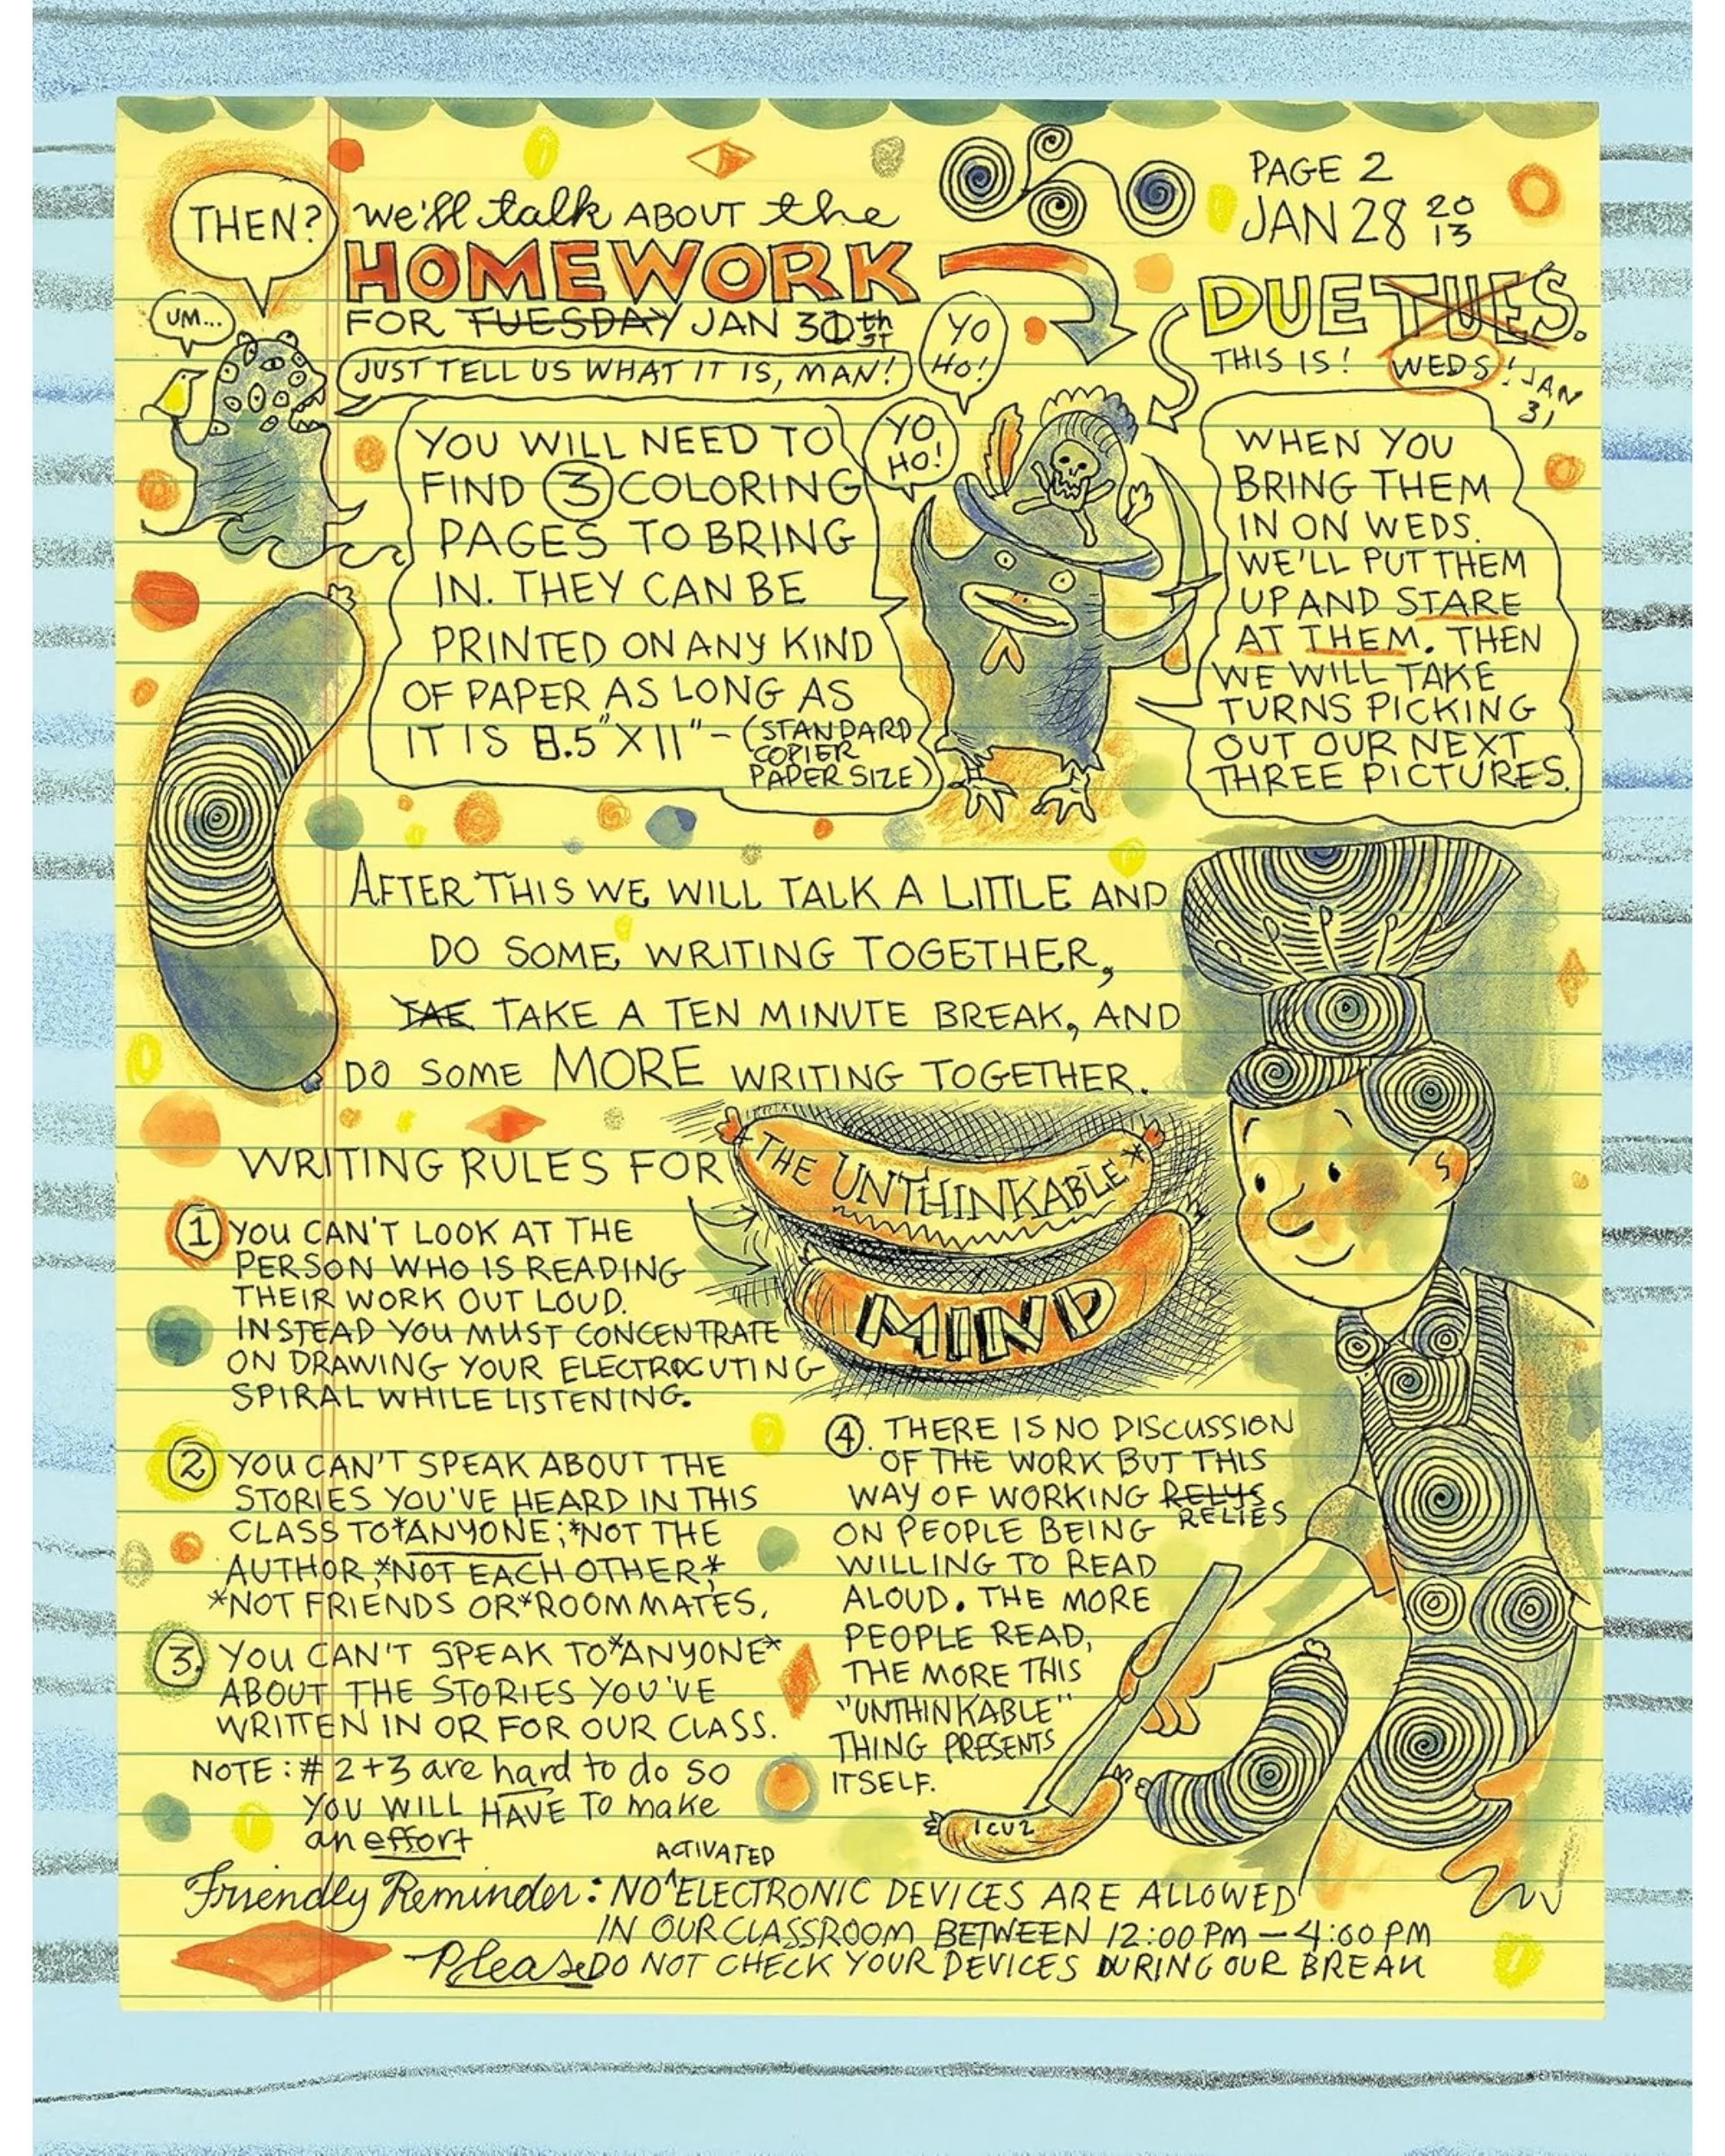 PAGE 2
JAN 28 2013
THEN?
we'll talk ABOUT the
HOMEWORK
FOR TUESDAY JAN 30th 31ST
UM...
JUST TELL US WHAT IT IS, MAN!
YO HO!
YO HO!
DUE TUES.
THIS IS! WEDS! JAN 31
YOU WILL NEED TO
FIND 3 COLORING
PAGES TO BRING
IN. THEY CAN BE
PRINTED ON ANY KIND
OF PAPER AS LONG AS
IT IS 8.5" X 11" - (STANDARD
COPIER
PAPER SIZE)
WHEN YOU
BRING THEM
IN ON WEDS.
WE'LL PUT THEM
UP AND STARE
AT THEM. THEN
WE WILL TAKE
TURNS PICKING
OUT OUR NEXT
THREE PICTURES.
AFTER THIS WE WILL TALK A LITTLE AND
DO SOME WRITING TOGETHER,
TAE TAKE A TEN MINUTE BREAK, AND
DO SOME MORE WRITING TOGETHER.
WRITING RULES FOR
THE UNTHINKABLE*
MIND
1 YOU CAN'T LOOK AT THE
PERSON WHO IS READING
THEIR WORK OUT LOUD.
INSTEAD YOU MUST CONCENTRATE
ON DRAWING YOUR ELECTROCUTING
SPIRAL WHILE LISTENING.
2 YOU CAN'T SPEAK ABOUT THE
STORIES YOU'VE HEARD IN THIS
CLASS TO *ANYONE; *NOT THE
AUTHOR, *NOT EACH OTHER, *
*NOT FRIENDS OR *ROOMMATES.
3. YOU CAN'T SPEAK TO *ANYONE*
ABOUT THE STORIES YOU'VE
WRITTEN IN OR FOR OUR CLASS.
NOTE: # 2+3 are hard to do so
YOU WILL HAVE TO make
an effort
4. THERE IS NO DISCUSSION
OF THE WORK BUT THIS
WAY OF WORKING RELYS
RELIES
ON PEOPLE BEING
WILLING TO READ
ALOUD. THE MORE
PEOPLE READ,
THE MORE THIS
"UNTHINKABLE"
THING PRESENTS
ITSELF.
ICU2
ACTIVATED
Friendly Reminder: NO ^ELECTRONIC DEVICES ARE ALLOWED
IN OUR CLASSROOM BETWEEN 12:00 PM - 4:00 PM
Please DO NOT CHECK YOUR DEVICES DURING OUR BREAK